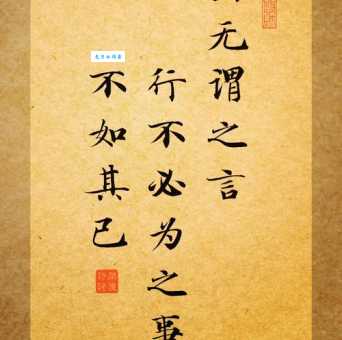 无谓之言
行不必为之事
不如其已